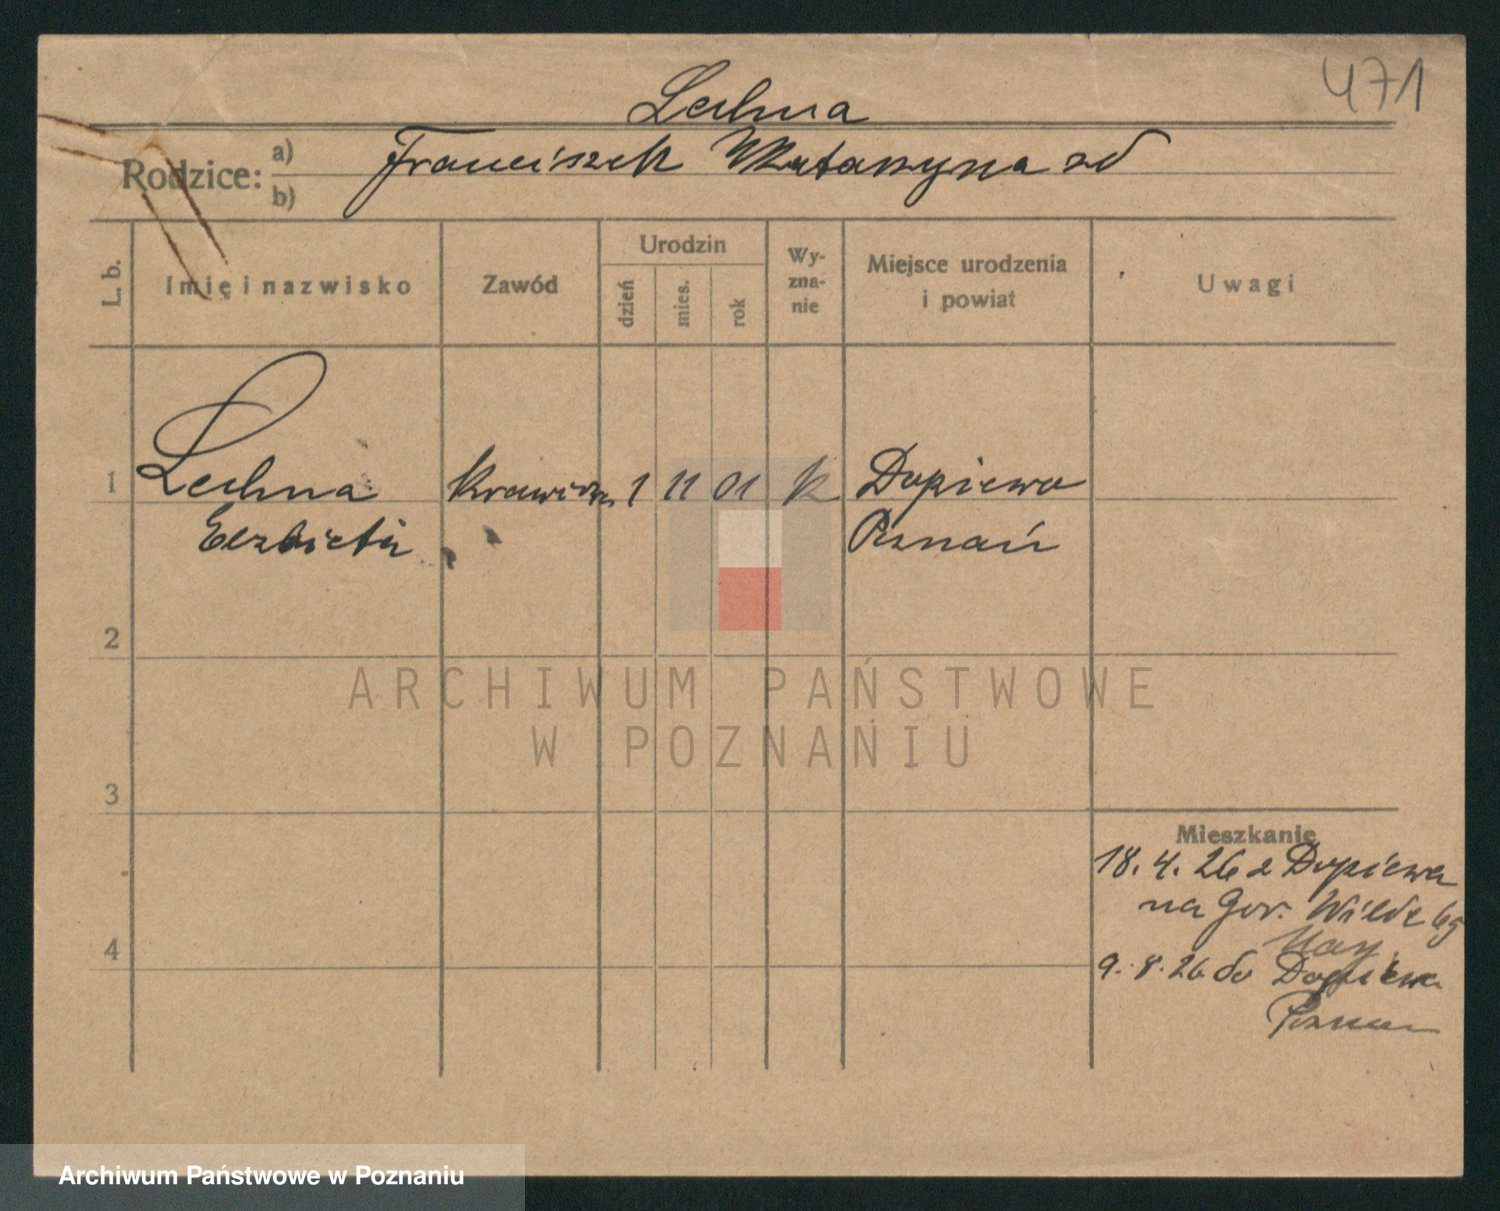 471
Lechna
Rodzice: a) b)
Franciszek Katarzyna zd
L. b.
Imię i nazwisko
Zawód
Urodzin
dzień
mies.
rok
Wy-
zna-
nie
Miejsce urodzenia
i powiat
Uwagi
1 Lechna 1 11 01 k Dopiewo
Elżbieta Poznań
2
3
4
Mieszkanie
18. 4. 26 z Dopiewa
na Gór. Wilda
9. 8. 26 do Dopiewa
Poznań
ARCHIWUM PAŃSTWOWE
W POZNANIU
Archiwum Państwowe w Poznaniu